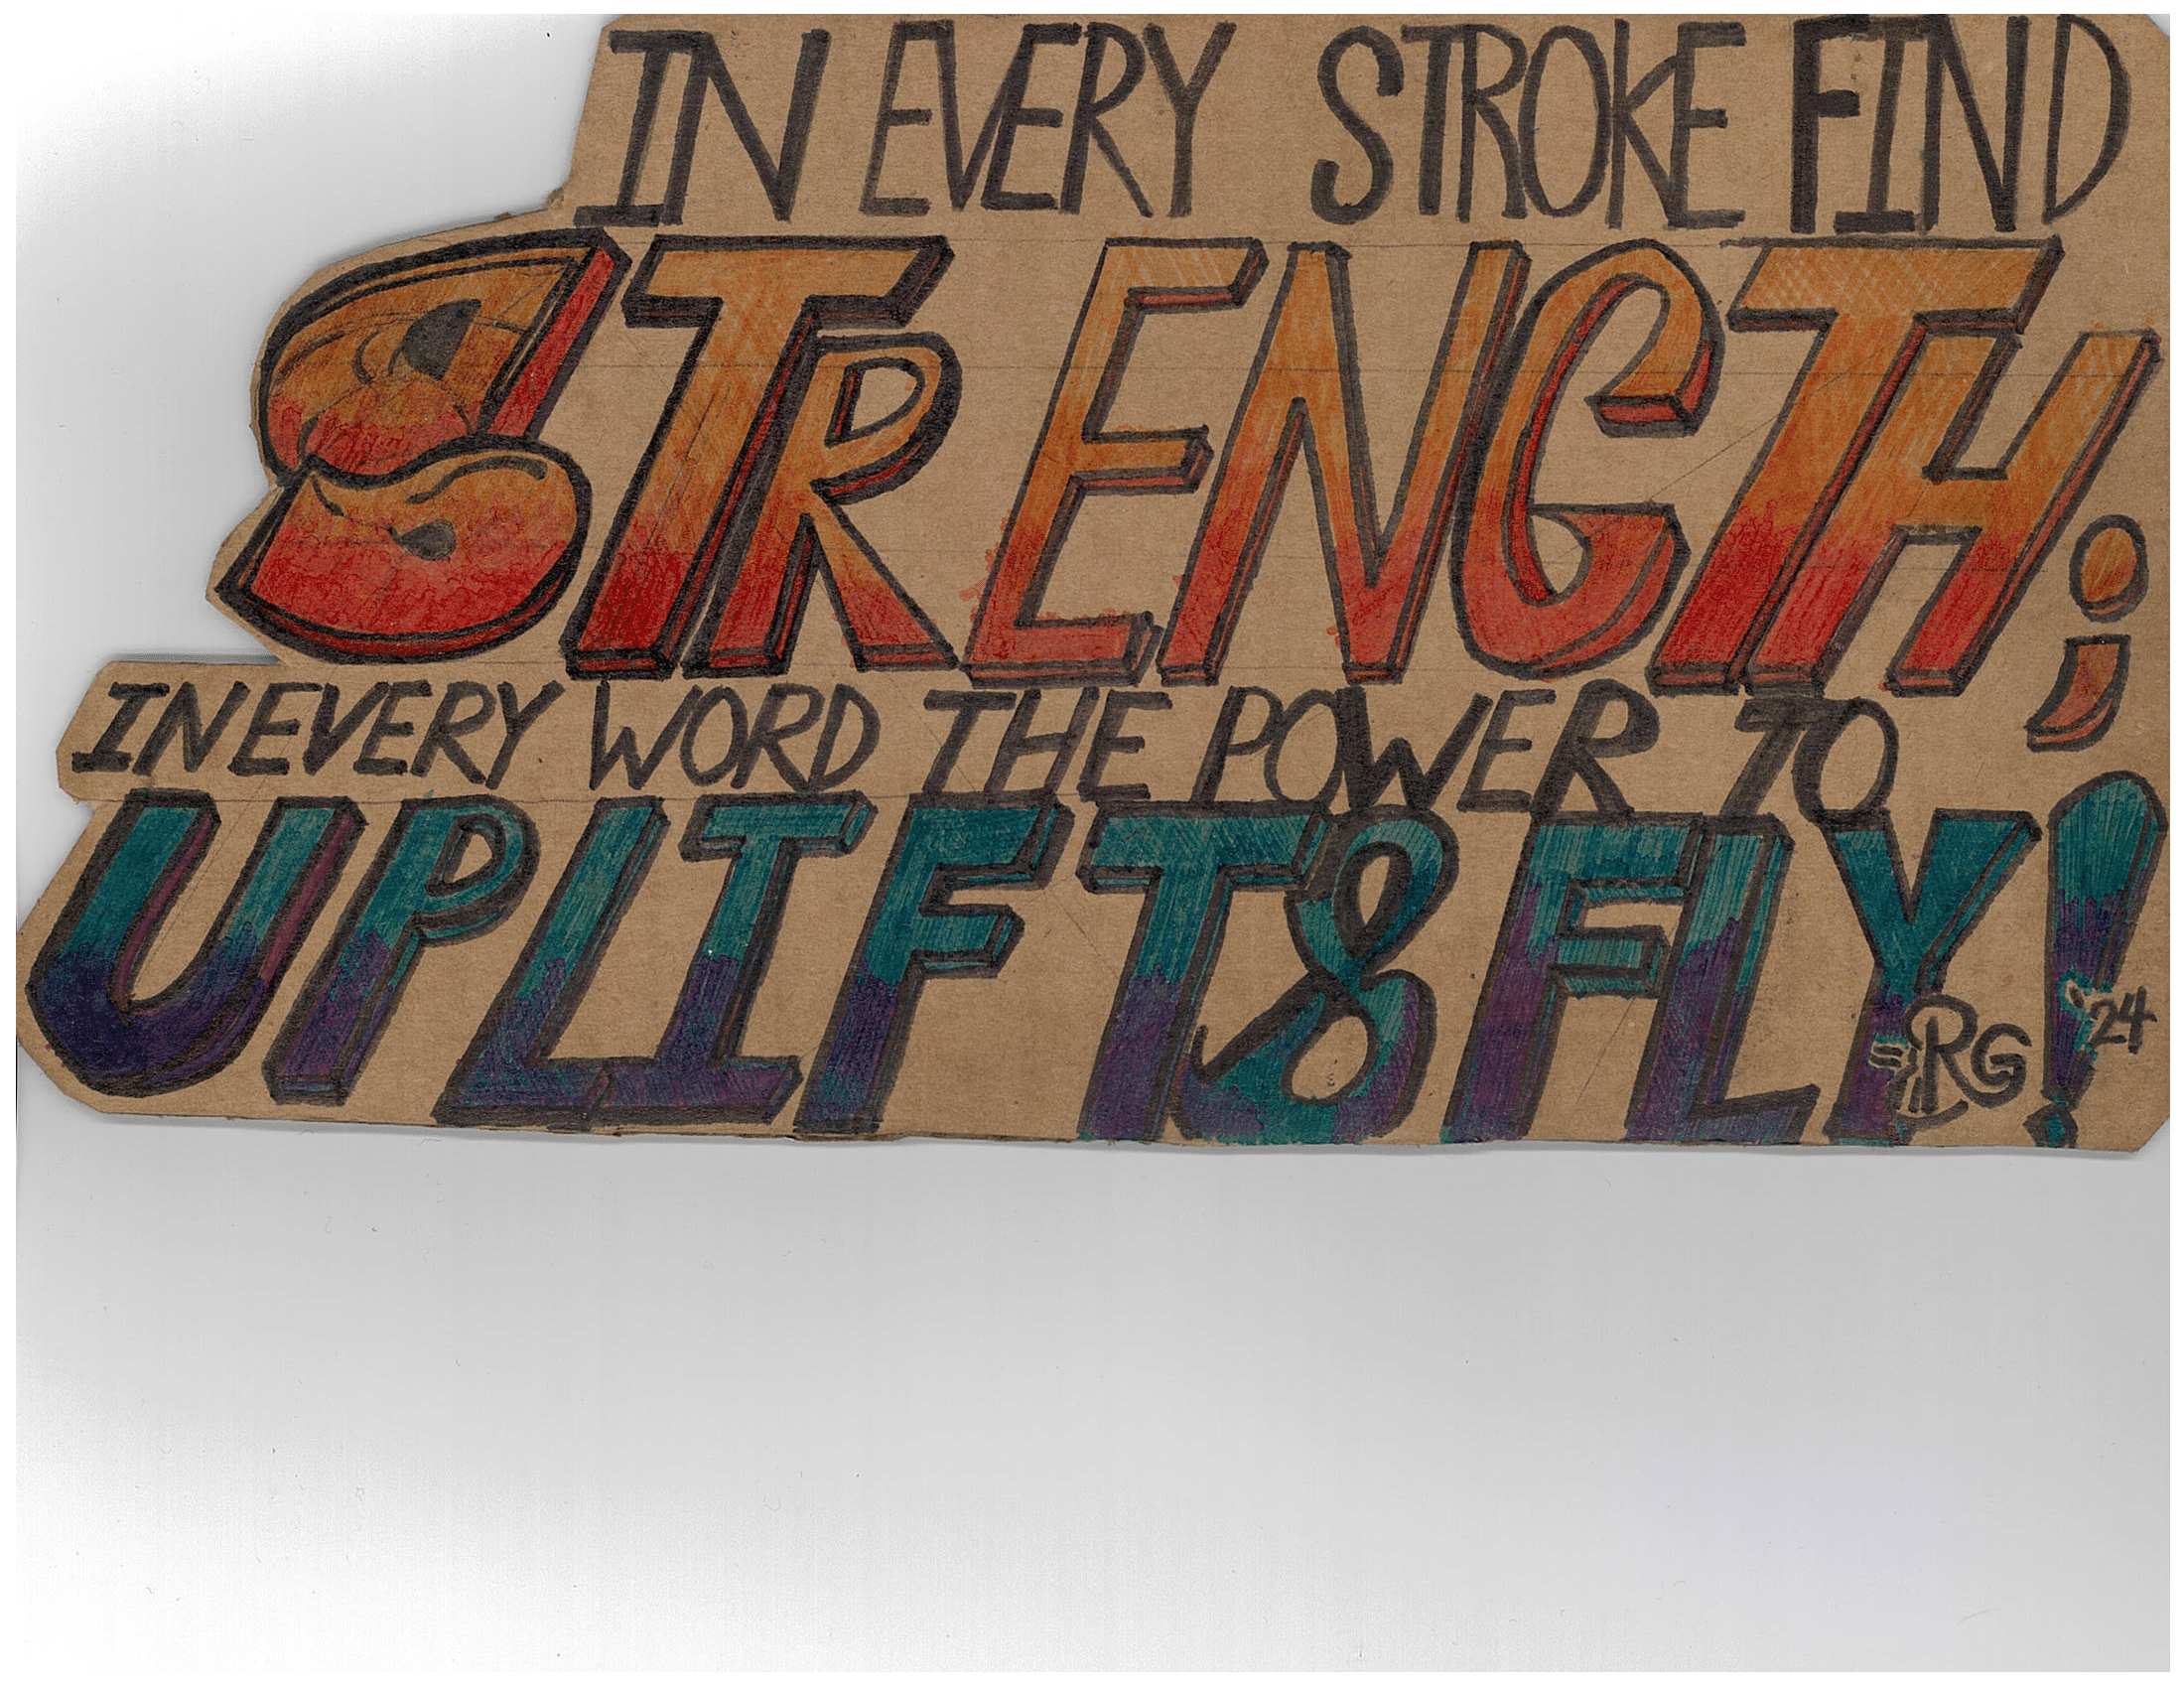 IN EVERY STROKE FIND
STRENGTH;
IN EVERY WORD THE POWER TO
UPLIFT & FLY!
RG '24